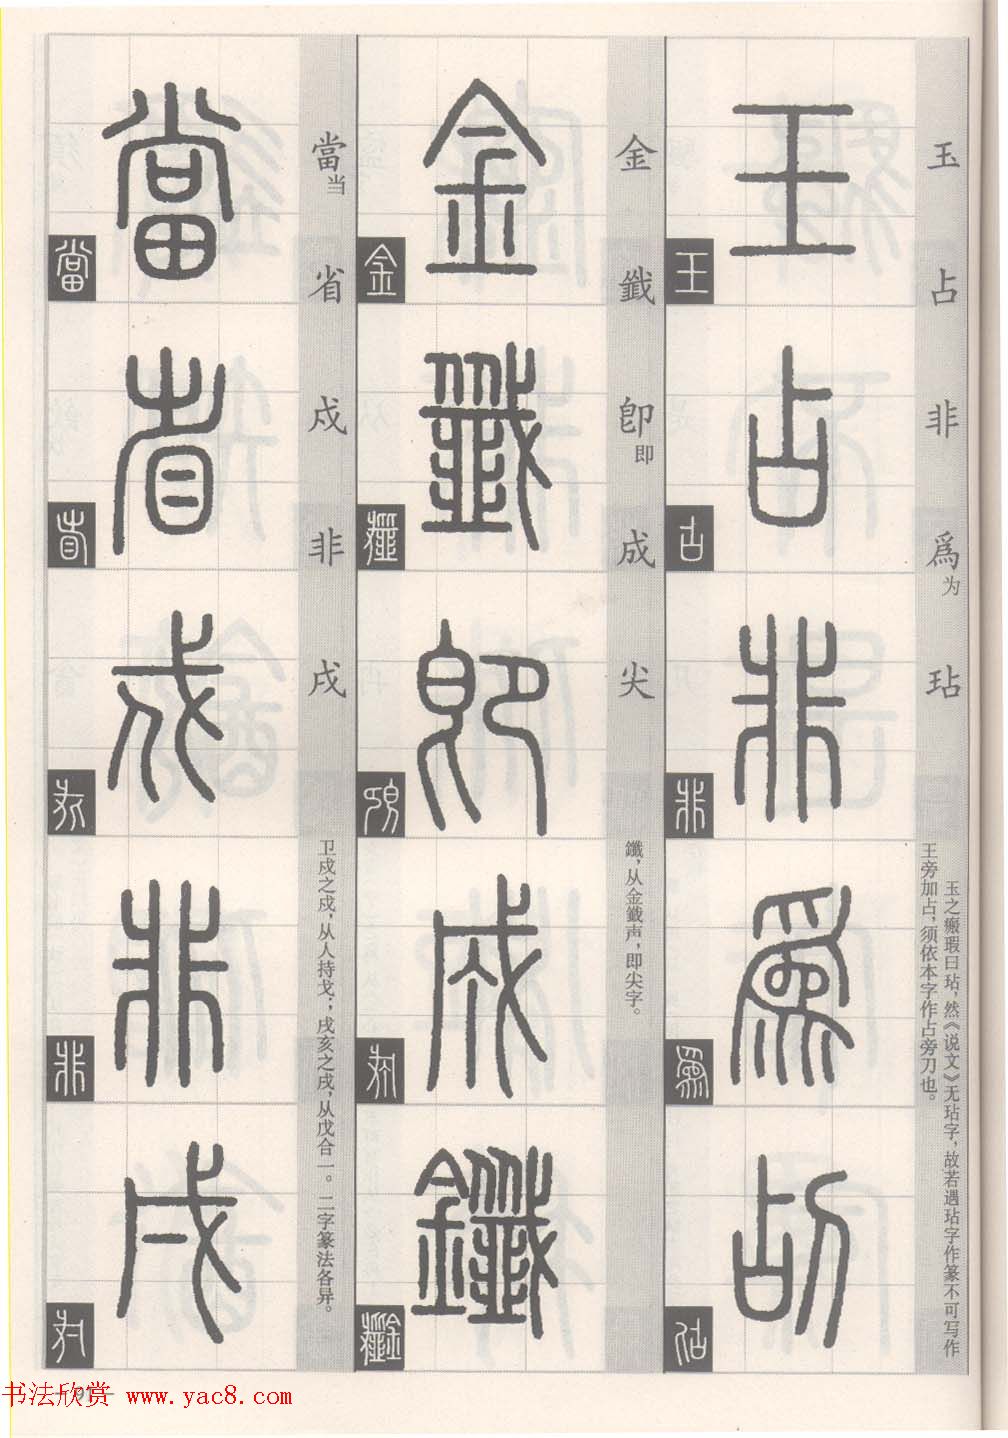 玉占非爲为玷
玉之瘢瑕曰玷，然《说文》无玷字，故若遇玷字作篆不可写作
王旁加占，须依本字作占旁刀也。
王
占
非
爲
刮
金韱卽即成尖
鑯，从金韱声，即尖字。
金
韱
卽
成
鑯
當当省戍非戌
卫戍之戍，从人持戈；戌亥之戌，从戊合一。二字篆法各异。
當
省
戍
非
戌
书法欣赏 www.yac8.com